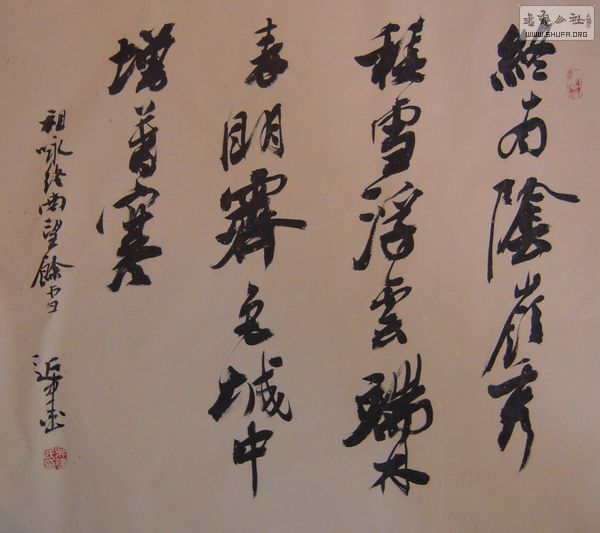 終南陰嶺秀
積雪浮雲端林
表明霽色城中
增暮寒
祖咏終南望餘雪
公社
WWW.SHUFA.ORG